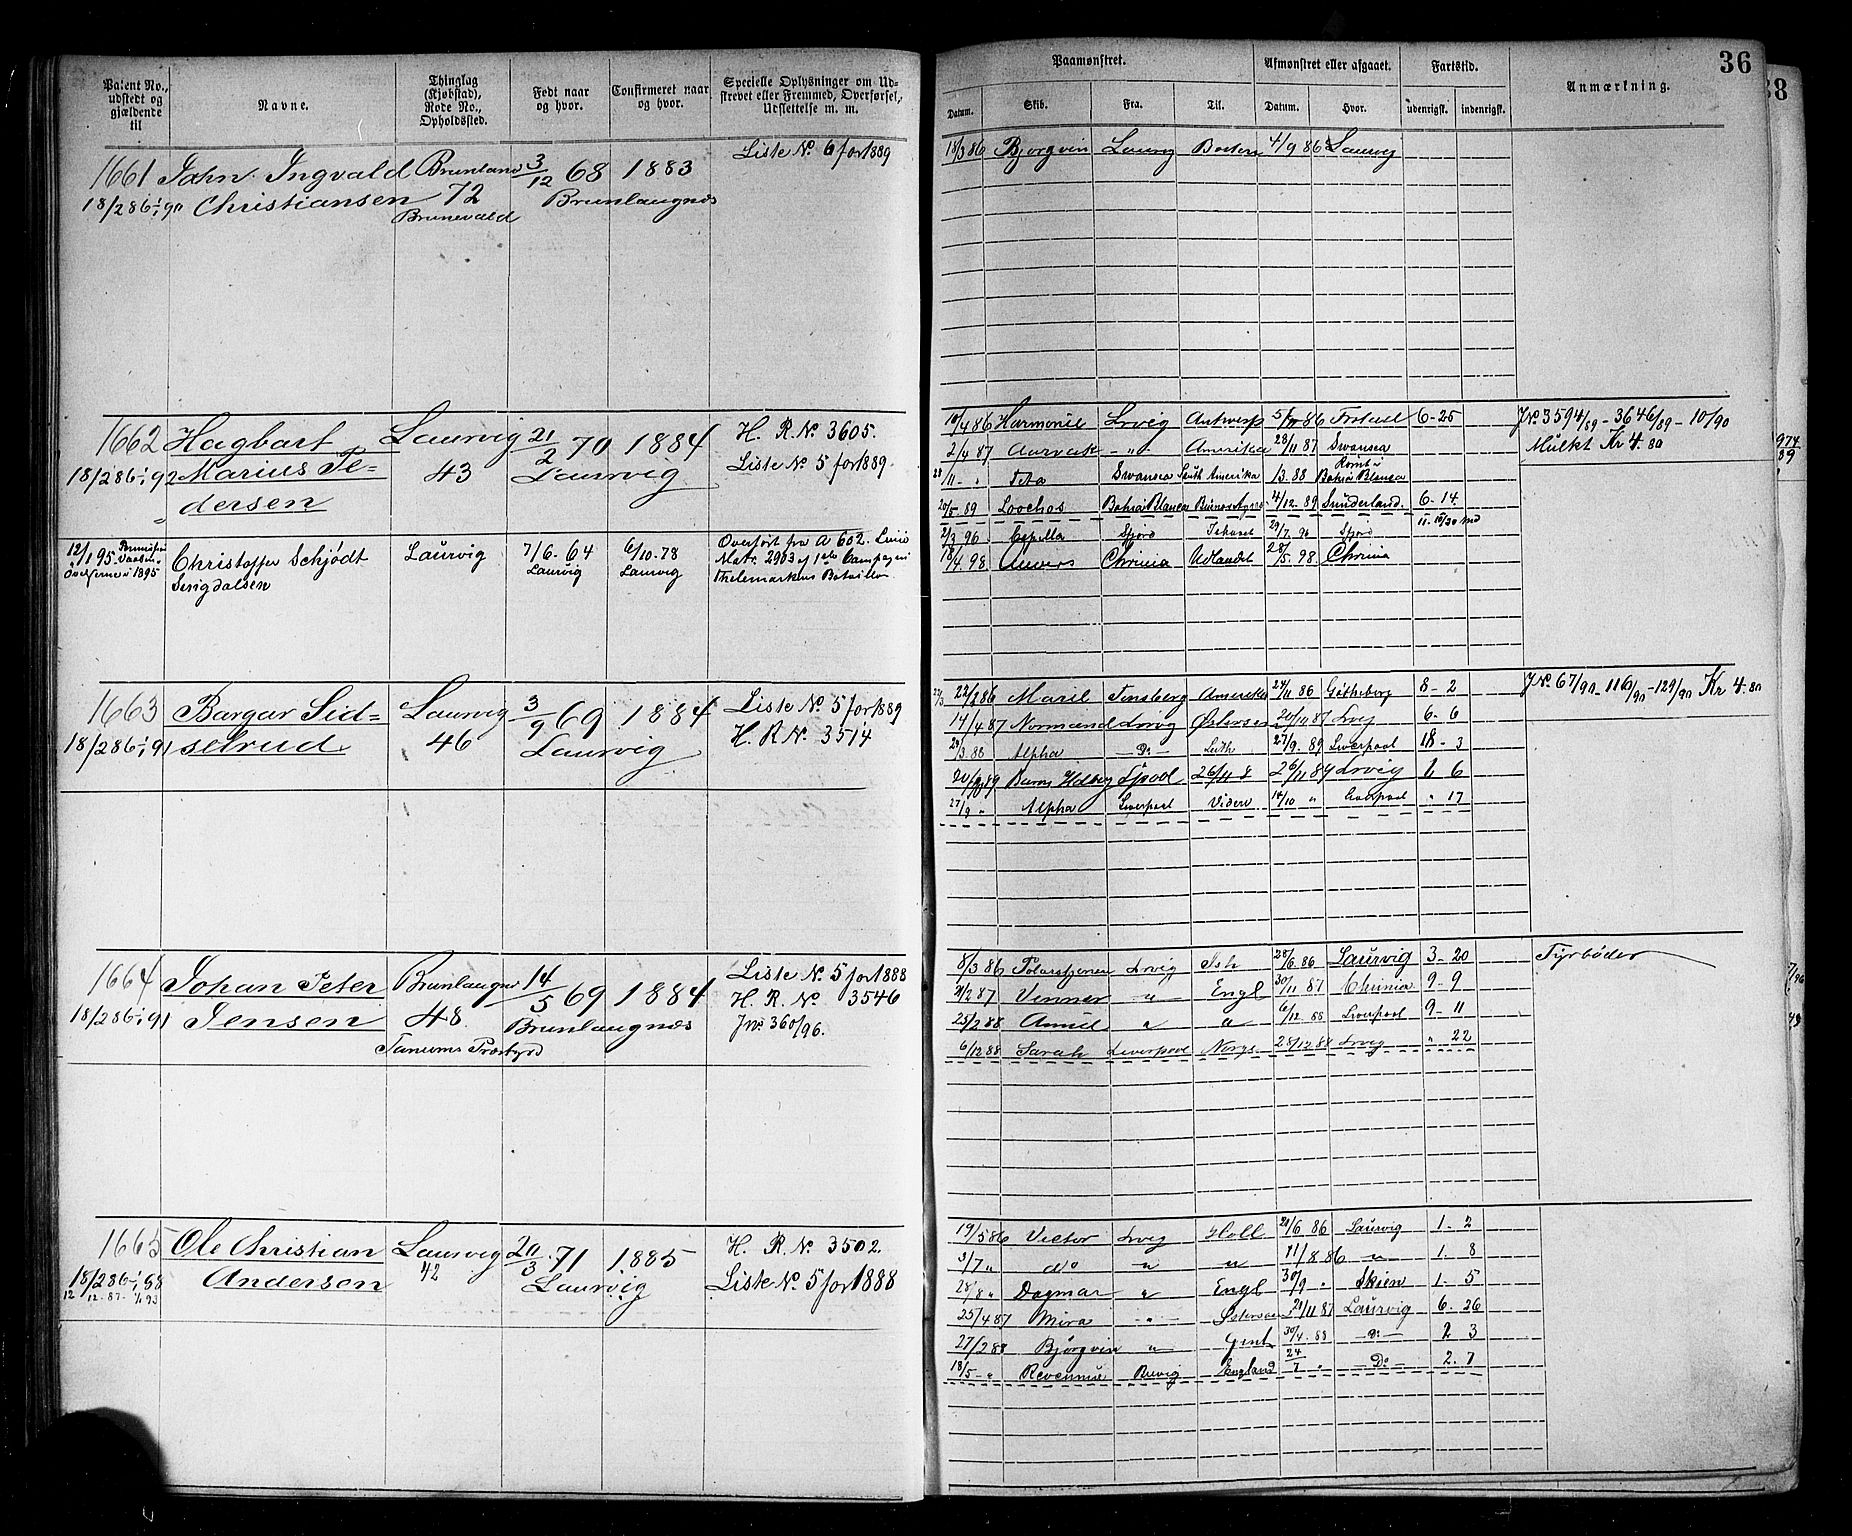 Patent No., udstedt og gjældende til
Navne.
Thinglag (Kjøbstad), Rode No., Opholdssted.
Født naar og hvor.
Confirmeret naar og hvor.
Specielle Oplysninger om Udstrevet eller Fremmed, Overførsel, Udslettelse m. m.
Paamønstret.
Afmønstret eller afgaaet.
Fartstid.
Anmærkning.
36
38
Datum. Skib. Fra. Til. Datum. Hvor. udenrigsk. indenrigsk.
1661 John Ingvald Brunland 3/12 68 1883 Liste No. 6 for 1889
18/2 86 1/1 90 Christiansen 72 Brunlangnæs
Brunevald
18/3 86 Bjorgvin Laurvig Boston 4/9 86 Laurvig
1662 Hagbart Laurvig 21/2 70 1884 H. R. No. 3605.
18/2 86 1/1 92 Marius Pe- 43 Laurvig Liste No. 5 for 1889.
dersen
10/4 86 Harmonie Lrvig Antwerp 86 6-25 J.No. 3594/89 - 3646/89 - 10/90
2/4 87 - " - Amerika 28/11 87 Swansea Mulkt Kr 4.80
28/11 - " Swansea Syd Amerika /3.88 Bahia Blanca
20/5-89 Loochos Bahia Blanca 4/12.89 Sunderland. 6-14
974/89
12/1 95 Christoffer Schjødt Laurvig 7/6-64 6/10-78 Overført fra A 602.
Serigdalsen Laurvig Laurvig Matr. 2903 af 1ste Campagni
Thelemarkens Bataillon
2/3 96 Capella Sfjord Ishavet 29/7 96 Sfjord
18/4 98 Anvers Chrinia Udlandet 28/5 98 Chrinia
1663 Bargar Sid= Laurvig 3/9 69 1884 Liste No. 5 for 1889
18/2 86 1/1 91 selrud 46 Laurvig H. R. No. 3514
22/2 86 Maril Tønsberg Amerika 24/11 86 Götheborg 8-2 J.No. 67/90 - 116/90 - 129/90 Kr 4.80
14/4 87 Normand Lrvig Østersøen 87 Lrvig 6-6
29/3.88 Alpha - Do - Leith 27/9.89 Liverpool 18-3
Lpool 26/11 8 26/11 89 Lrvig 1 6
27/9 " Alpha Liverpool Videre 14/10 " Liverpool " 17
1664 Johan Peter Brunlangnæs 14/5 69 1884 Liste No. 5 for 1888
18/2 86 1/1 91 Jensen 48 Brunlangnæs H. R. No. 3546
Tanums Præstgrd J.No. 360/96.
8/3 86 Polarstjernen Lrvig Ish 28/6.86 Laurvig 3-20 Fyrbøder
2/2 87 Venner " Engl 30/11 87 Chrinia 9-9
25/2 88 " " 6/12 88 Liverpool 9-11
6/12 88 Sarah Liverpool Norge 28/12.88 Lrvig " 22
1665 Ole Christian Laurvig 20/3 71 1885 H. R. No. 3502.
18/2 86 1/1 88 Andersen 42 Laurvig Liste No. 5 for 1888
12/12-87-1/1 93
19/5 86 Victor Lrvig Holl 86 Laurvig 1-2
3/7 " do " " 11/8.86 " 1.8
28/8 " Dagmar " Engl 30/9 " Skien 1-5
25/4 87 Mira - " - 11 87 Laurvig 6-26
27/2 88 Bjørgvin " Gent 30/4.88 - Do - 2 3
18/5 - " Revennue Brevig England 24/7 " - Do - 2.7